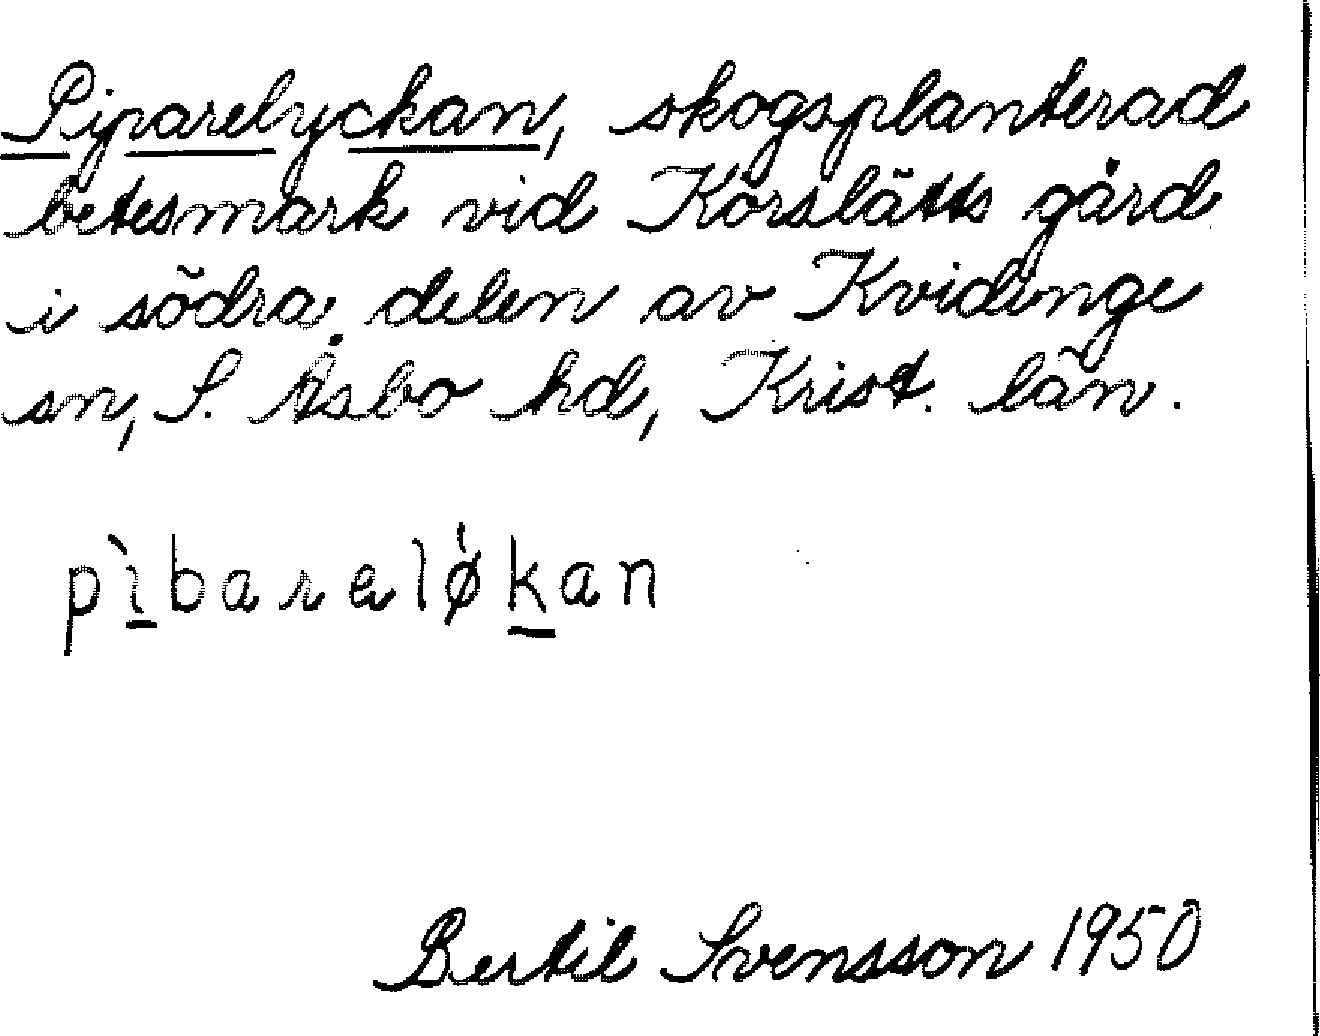 Piparelyckan, skogsplanterad
betesmark vid Körslätts gård
i södra delen av Kvidinge
sn, S. Åsbo hd, Krist. län.
pìbarəlø̍kan
Bertil Svensson 1950